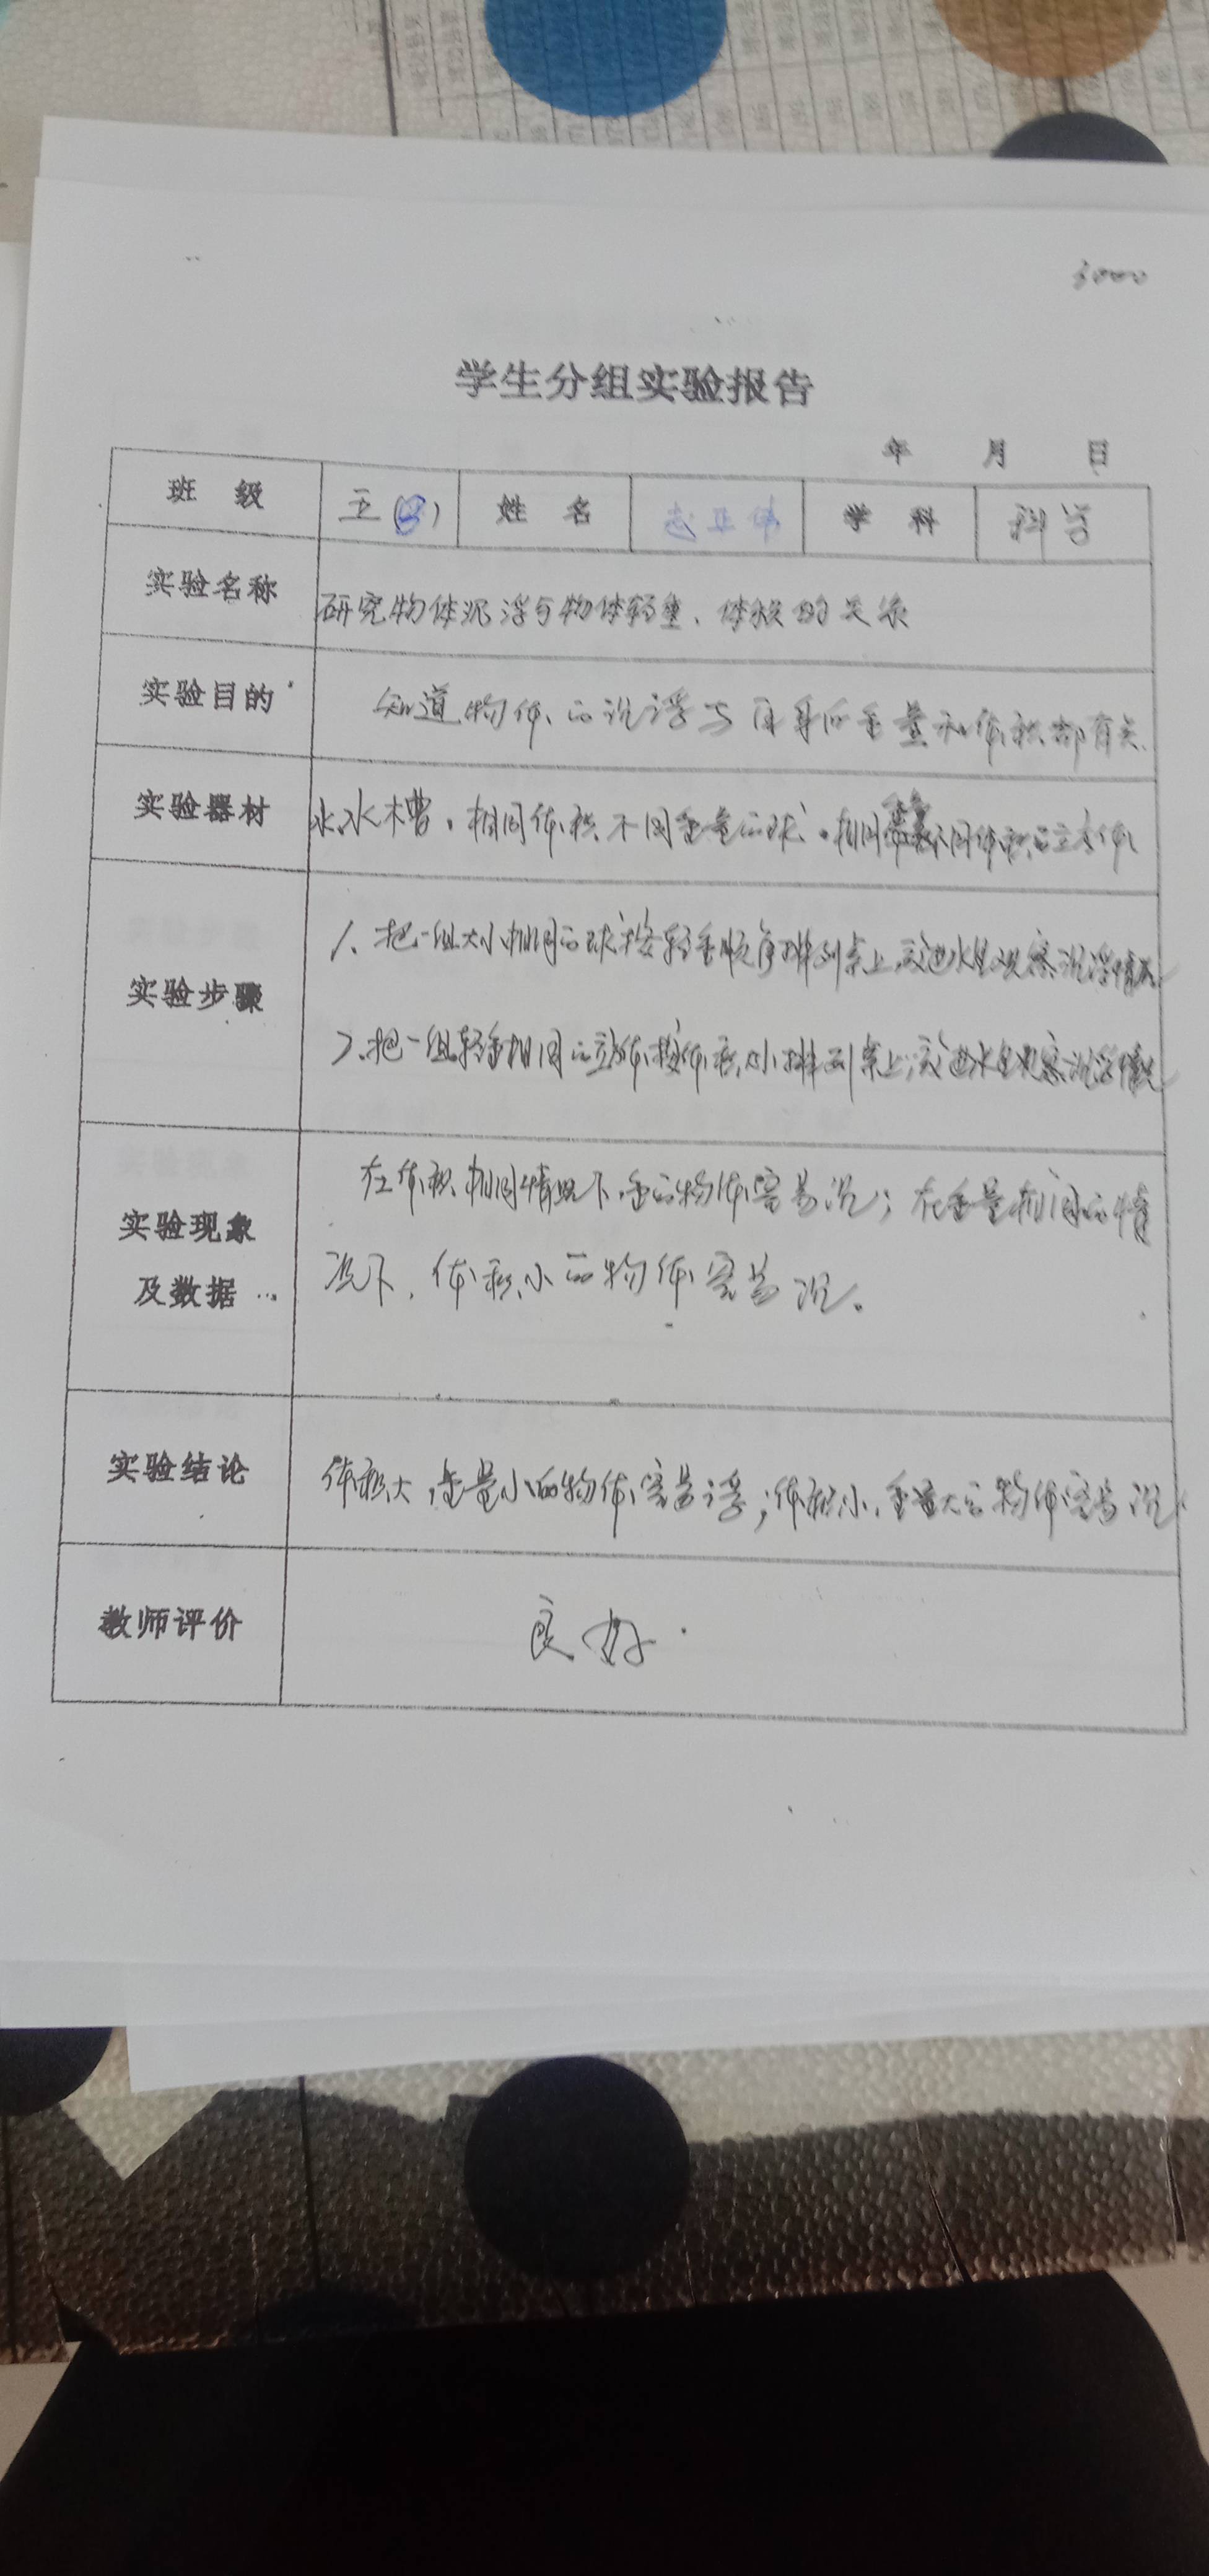 学生分组实验报告
年 月 日
班 级 五( ) 姓 名 学 科 科学
实验名称 研究物体沉浮与物体轻重、体积的关系
实验目的 知道物体的沉浮与自身的重量和体积都有关.
实验器材 水、水槽、相同体积不同重量的球、相同重量不同体积的立方体
实验步骤
1、把一组大小相同的球按轻重顺序排列桌上,放进水里观察沉浮情况
2、把一组轻重相同的立方体按体积大小排列桌上,放进水里观察沉浮情况
实验现象
及数据
在体积相同情况下,重的物体容易沉;在重量相同的情
况下,体积小的物体容易沉。
实验结论 体积大,重量小的物体容易浮;体积小,重量大的物体容易沉
教师评价 良好.